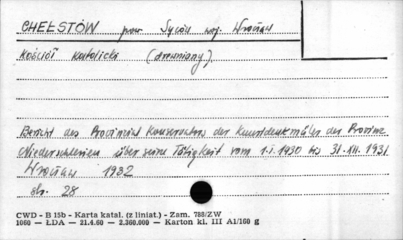 CHEŁSTÓW pow. Syców woj. Wrocław
Kościół katolicki (drewniany)
Bericht des Provinzial Konservators der Kunstdenkmäler der Provinz
Niederschlesien über seine Tätigkeit vom 1.I.1930 bis 31.XII.1931
Wrocław 1932
str. 28
CWD - B 15b - Karta katal. (z liniat.) - Zam. 788/ZW
1060 — ŁDA — 21.4.60 — 2.360.000 — Karton kl. III A1/160 g